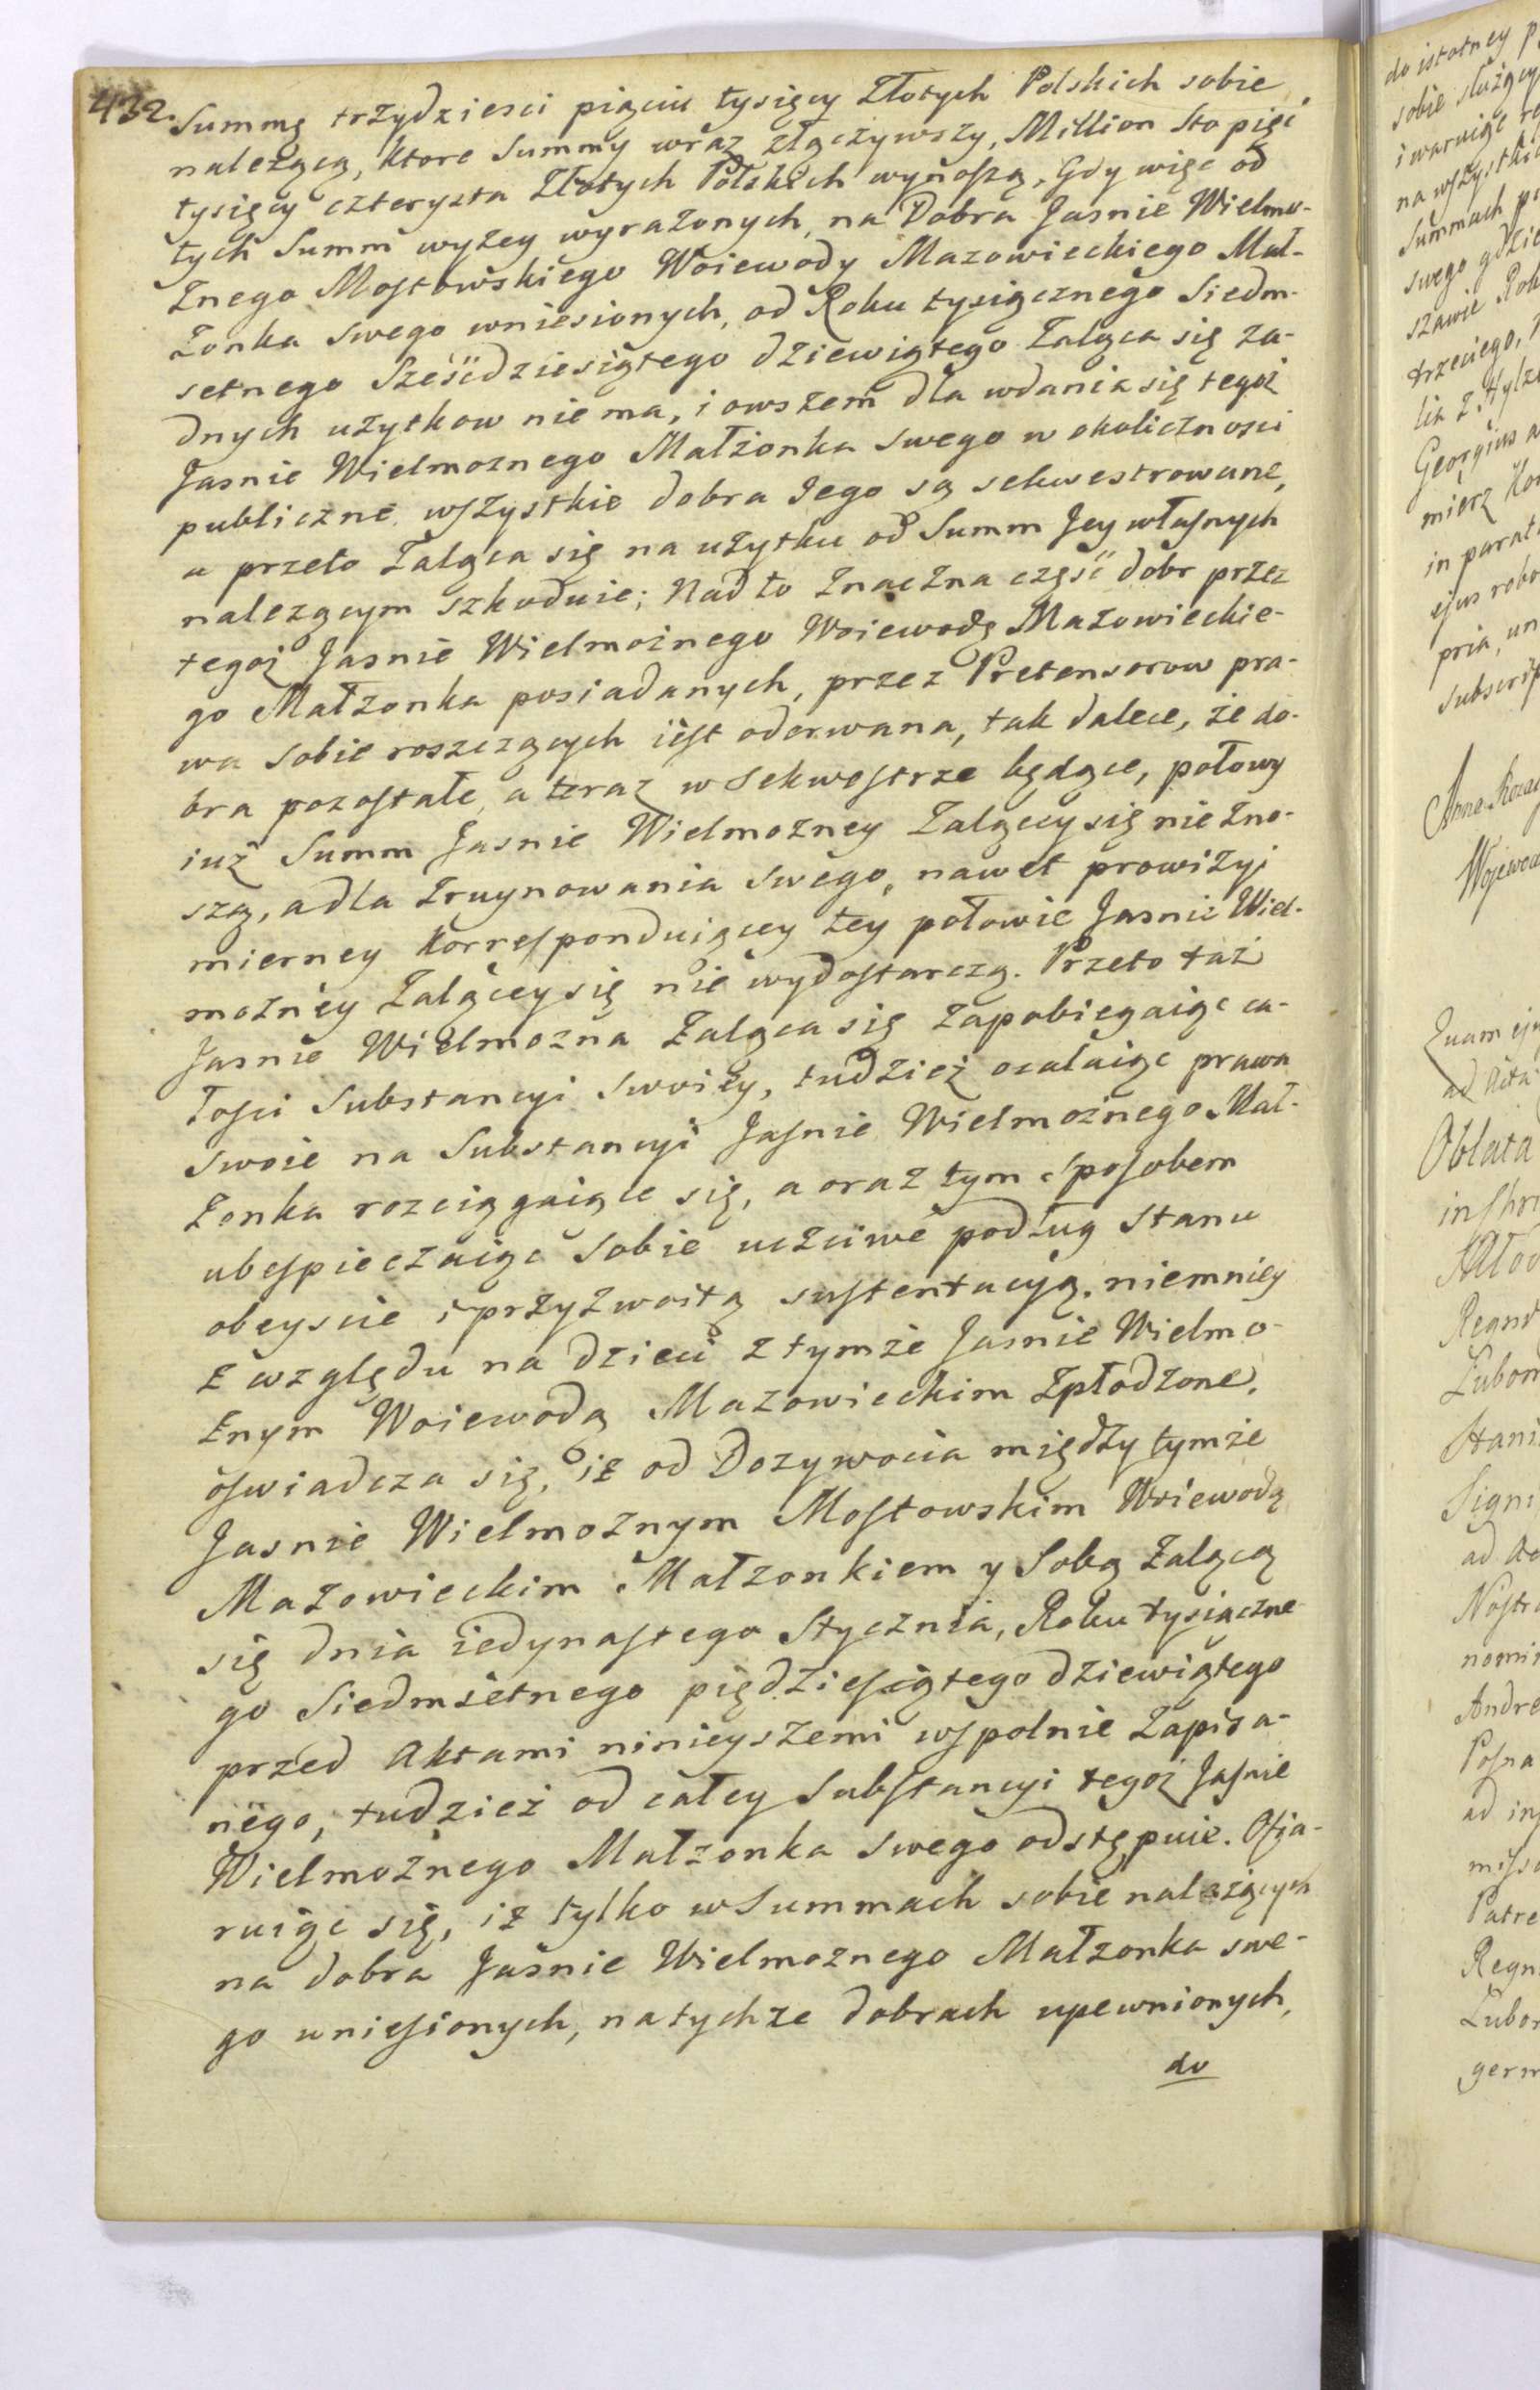 432.
Summę trzydziesci pięciu tysięcy Złotych Polskich sobie
należącą, ktore Summy wraz złączywszy, Million Sto pięć
tysięcy czterysta Złotych Polskich wynoszą, Gdy więc od
tych Summ wyżey wyrażonych, na Dobra Jasnie Wielmo-
żnego Mostowskiego Woiewody Mazowieckiego Mał-
żonka swego wniesionych, od Roku tysiącznego Siedm-
setnego Sześćdziesiątego dziewiątego Żaląca się ża-
dnych użytkow nie ma, i owszem dla wdania się tegoż
Jasnie Wielmożnego Małżonka swego w okoliczności
publiczne, wszystkie dobra Jego są sekwestrowane,
a przeto Żaląca się na użytku od Summ Jey własnych
należącym szkoduie; Nadto Znaczna część dobr przez
tegoż Jasnie Wielmożnego Woiewodę Mazowieckie-
go Małżonka posiadanych, przez Pretensorow pra-
wa sobie roszczących iest oderwana, tak dalece, że do-
bra pozostałe, a teraz w Sekwestrze będące, połowy
iuż Summ Jasnie Wielmożney Żalącey się nie zno-
szą, a dla Zruynowania swego, nawet prowizyi
mierney korrespondującey tey połowie Jasnie Wiel-
możney Żalącey się nie wydostarczą. Przeto taż
Jasnie Wielmożna Żaląca się zapobiegaiąc ca-
łości Substancyi swoiey, tudzież ocalaiąc prawa
swoie na Substancyi Jasnie Wielmożnego Mał-
żonka rozciągaiące się, a oraz tym sposobem
ubespieczaiąc sobie uczciwe podług Stanu
obeyscie i przyzwoitą sustentacyą, niemniey
z względu na dzieci z tymże Jasnie Wielmo-
żnym Woiewodą Mazowieckim Zpłodzone,
oswiadcza się, iż od Dożywocia między tymże
Jasnie Wielmożnym Mostowskim Woiewodą
Mazowieckim Małżonkiem y Sobą Żalącą
się dnia iedynastego Stycznia, Roku tysiączne-
go Siedmsetnego pięćdziesiątego dziewiątego
przed Aktami ninieyszemi wspolnie Zapisa-
nego, tudzież od całey Substancyi tegoż Jasnie
Wielmożnego Małżonka swego odstępuie. Ofia-
ruiąc się, iż tylko w Summach sobie należących
na dobra Jasnie Wielmożnego Małżonka swe-
go wniesionych, na tychże dobrach upewnionych,
do
do istotney
sobie służący
i waruiąc
na wszystki
Summach
swego gdzie
szawie Rok
trzeciego,
lia z Hylz
Georgius
mierz
in parat
ejus robo
pria, un
subscrip
Anna
Wojewod
Quam
ad Acta
Oblata
Regn
Lubom
Stani
Signi
ad
Nostr
nomi
Andre
Posna
ad
Patre
Regn
Lubo
germ